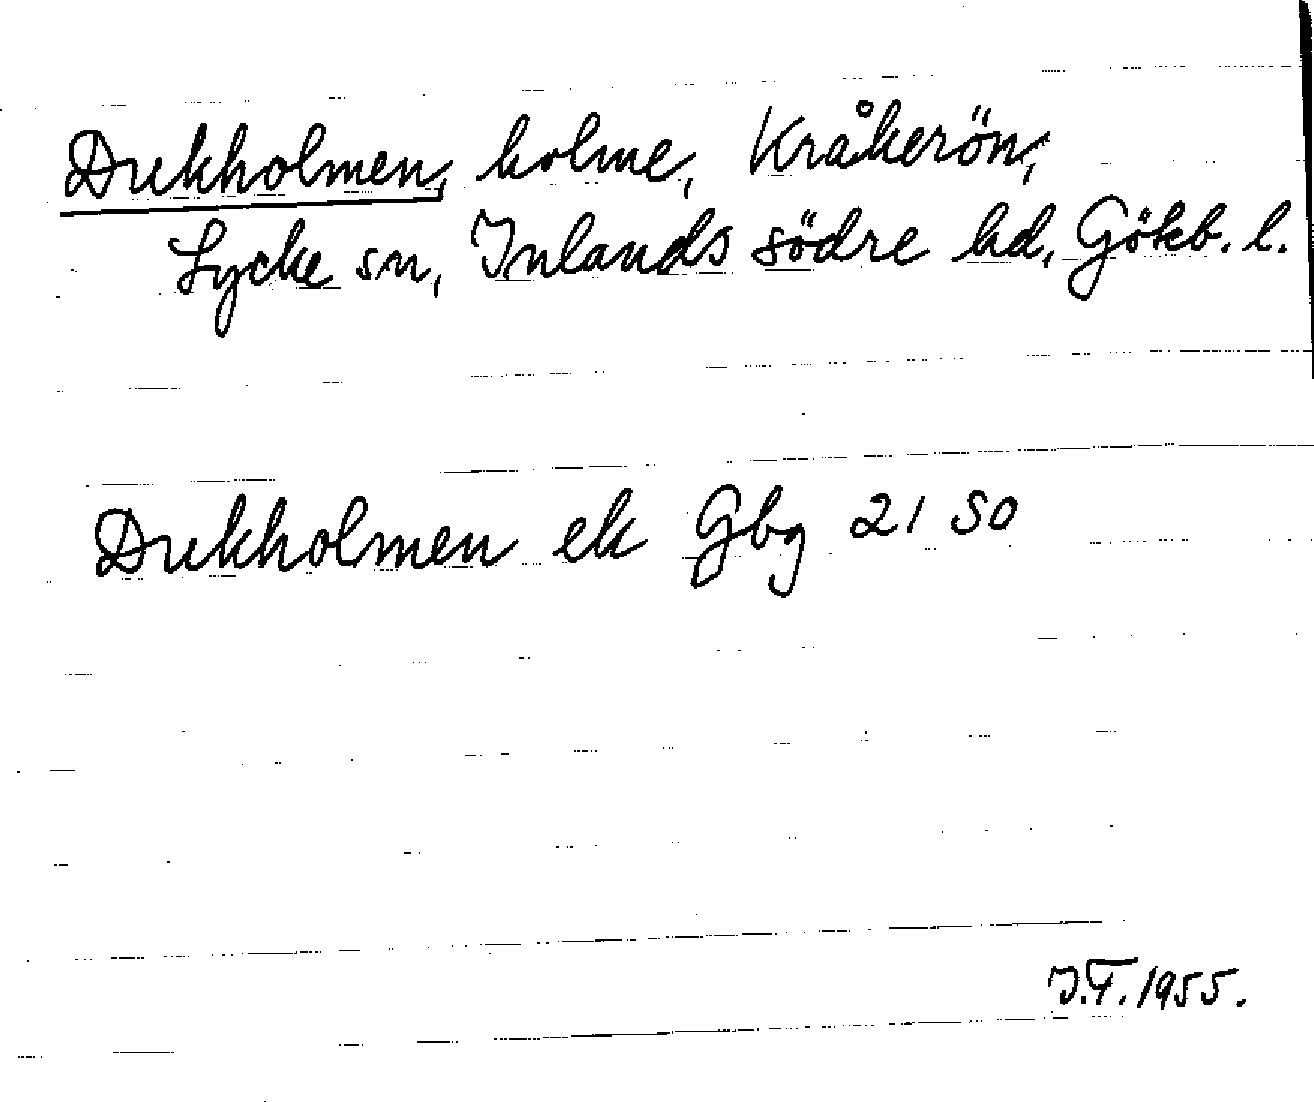 Dukholmen, holme, Kråkerön,
Lycke sn, Inlands södre hd, Göteb. l.
Dukholmen ek Gbg 21 SO
J.F. 1955.